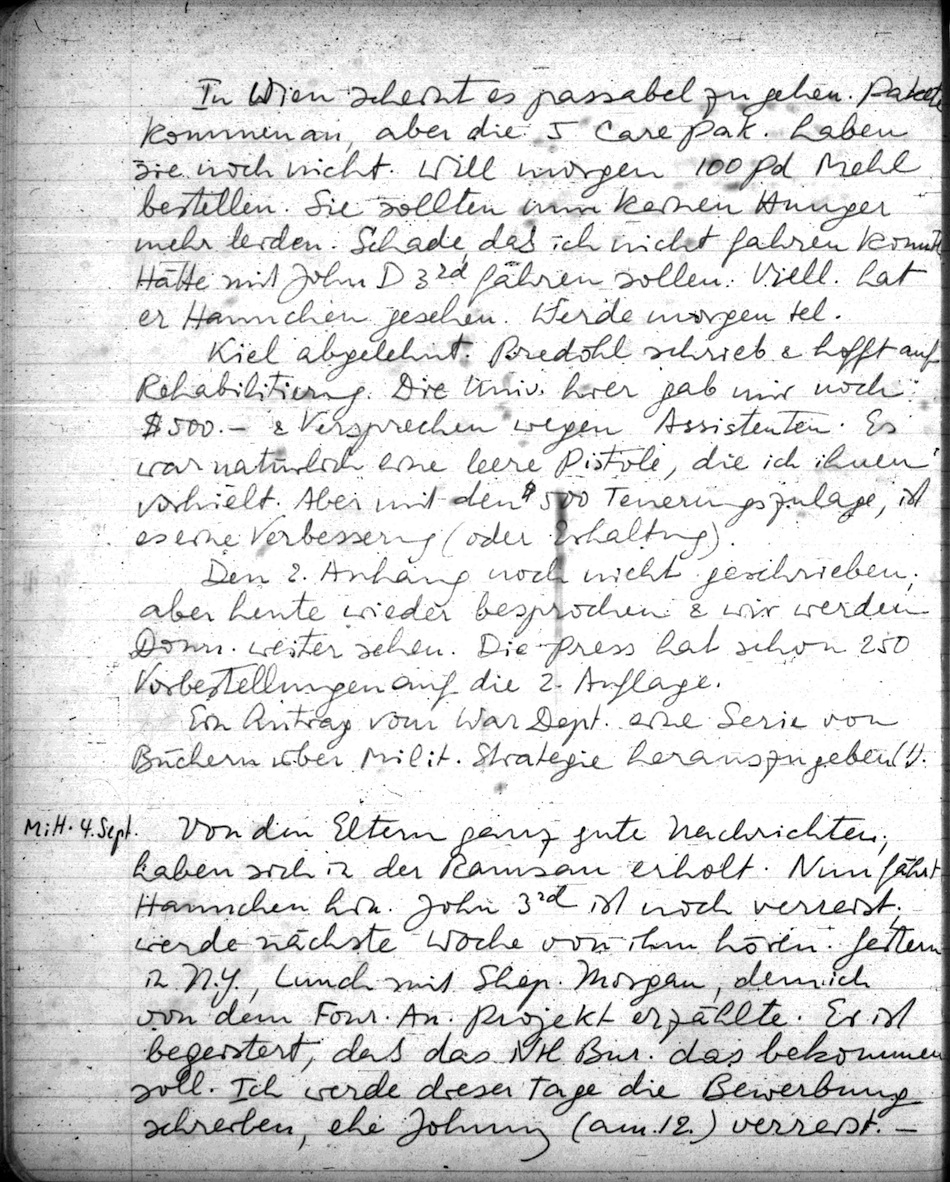 In Wien scheint es passabel zu gehen. Pakete
kommen an, aber die 5 Care Pak. haben
sie noch nicht. Will morgen 100 Pd Mehl
bestellen. Sie sollten nun keinen Hunger
mehr leiden. Schade, daß ich nicht fahren konnte
Hätte mit John D 3rd fahren sollen. Viell. hat
er Hannchen gesehen. Werde morgen tel.
Kiel abgelehnt. Predöhl schrieb & hofft auf
Rehabilitierung. Die Univ. hier gab mir noch
$500.– & Versprechen wegen Assistenten. Es
war natürlich eine leere Pistole, die ich ihnen
vorhielt. Aber mit den $500 Teuerungszulage, ist
es eine Verbesserung (oder Erhaltung).
Den 2. Anhang noch nicht geschrieben,
aber heute wieder besprochen & wir werden
Donn. weiter sehen. Die Press hat schon 250
Vorbestellungen auf die 2. Auflage.
Ein Antrag vom War Dept. eine Serie von
Büchern über Milit. Strategie herauszugeben(!).
Mitt. 4. Sept. Von den Eltern ganz gute Nachrichten,
haben sich in der Ramsau erholt. Nun fährt
Hannchen hin. John 3rd ist noch verreist,
werde nächste Woche von ihm hören. Gestern
in N.Y., Lunch mit Shep. Morgan, dem ich
von dem Four. An. Projekt erzählte. Er ist
begeistert, daß das Ntl Bur. das bekommen
soll. Ich werde dieser Tage die Bewerbung
schreiben, ehe Johnny (am 12.) verreist. –